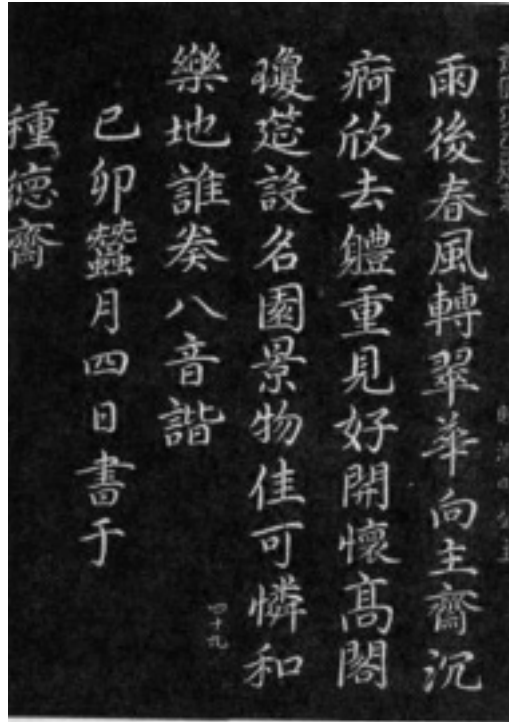 雨後春風轉翠華向主齋沉
痾欣去軆重見好開懷髙閣
瓊莚設名園景物佳可憐和
樂地誰奏八音諧
己卯蠶月四日書于
種德齋
四十九